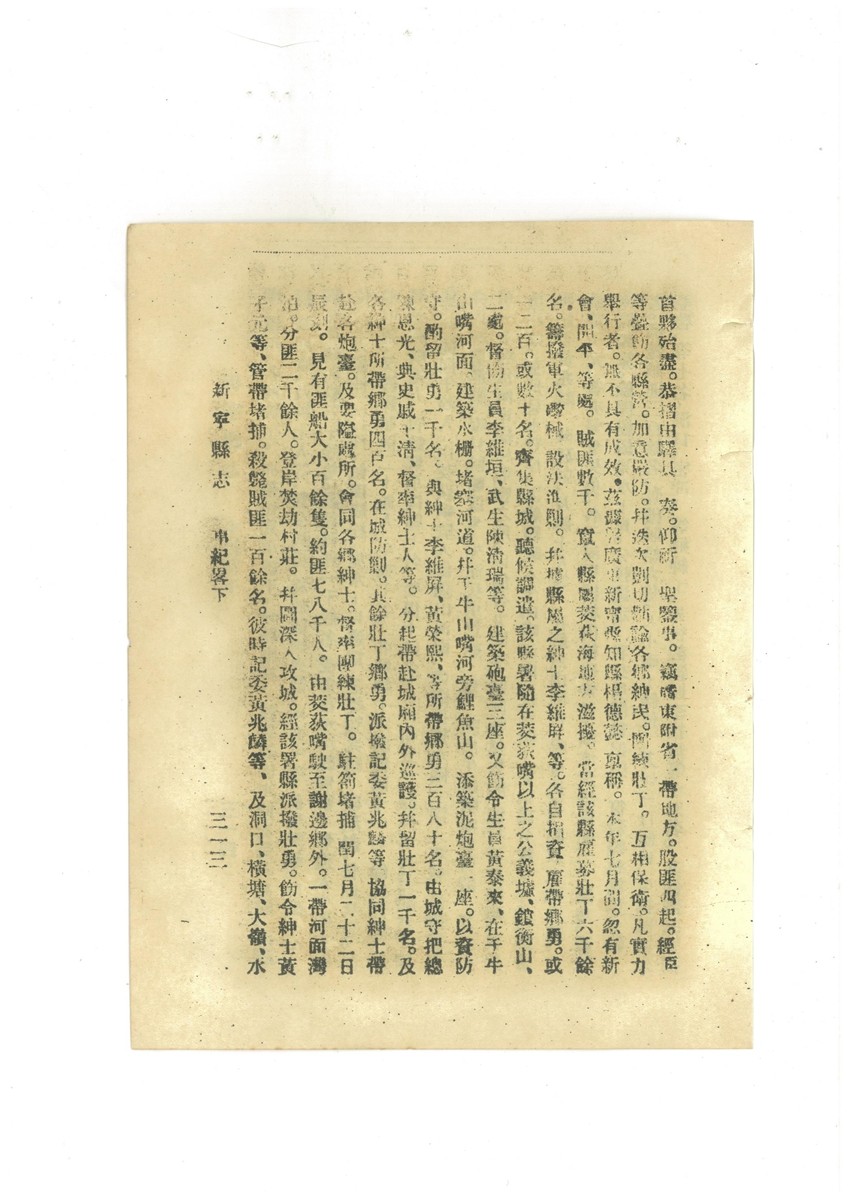 首夥殆盡。恭摺由驛具 奏。仰祈 聖鑒事。竊嘈東附省一帶地方。股匪四起。經臣
等疊飭各縣營。加意嚴防。并迭次剴切諭各鄉紳民。團練壯丁。互相保衛。凡實力
舉行者。無不具有成效。茲據署廣東新寧縣知縣楊德懿 稟稱。本年七月間。忽有新
會、開平、等處。賊匪數千。竄入縣屬茭荻海地方滋擾。當經該縣雇募壯丁六千餘
名。籌撥軍火器械 設法進剿。并據縣屬之紳士李維屏、等。各自捐資 雇帶鄉勇。或
一二百。或數十名。齊集縣城。聽候調遣。該縣署隨在茭荻嘴以上之公義墟、鎖衡山、
二處。督飭生員李維垣、武生陳清瑞等。建築砲臺三座。又飭令生員黃泰來、在于牛
山嘴河面。建築水柵。堵塞河道。并于牛山嘴河旁鯉魚山。添築泥炮臺一座。以資防
守。酌留壯勇一千名、與紳士李維屏、黃榮熙、等所帶鄉勇三百八十名。由城守把總
陳恩光、典史戚士清、督率紳士人等。分起帶赴城廂內外巡護。并留壯丁一千名。及
各紳士所帶鄉勇四百名。在城防剿。其餘壯丁鄉勇。派撥記委黃兆麟等 協同紳士帶
赴各炮臺。及要隘處所。會同各鄉紳士。督率團練壯丁。駐劄堵捕 閏七月二十二日
辰刻。見有匪船大小百餘隻。約匪七八千人。由茭荻嘴駛至謝邊鄉外。一帶河面灣
泊。分匪二千餘人。登岸焚劫村莊。并圖深入攻城。經該署縣派撥壯勇。飭令紳士黃
子元等、管帶堵捕。殺斃賊匪一百餘名。彼時記委黃兆麟等、及洞口、橫塘、大嶺、水
新寧縣志 事紀畧下 三一三